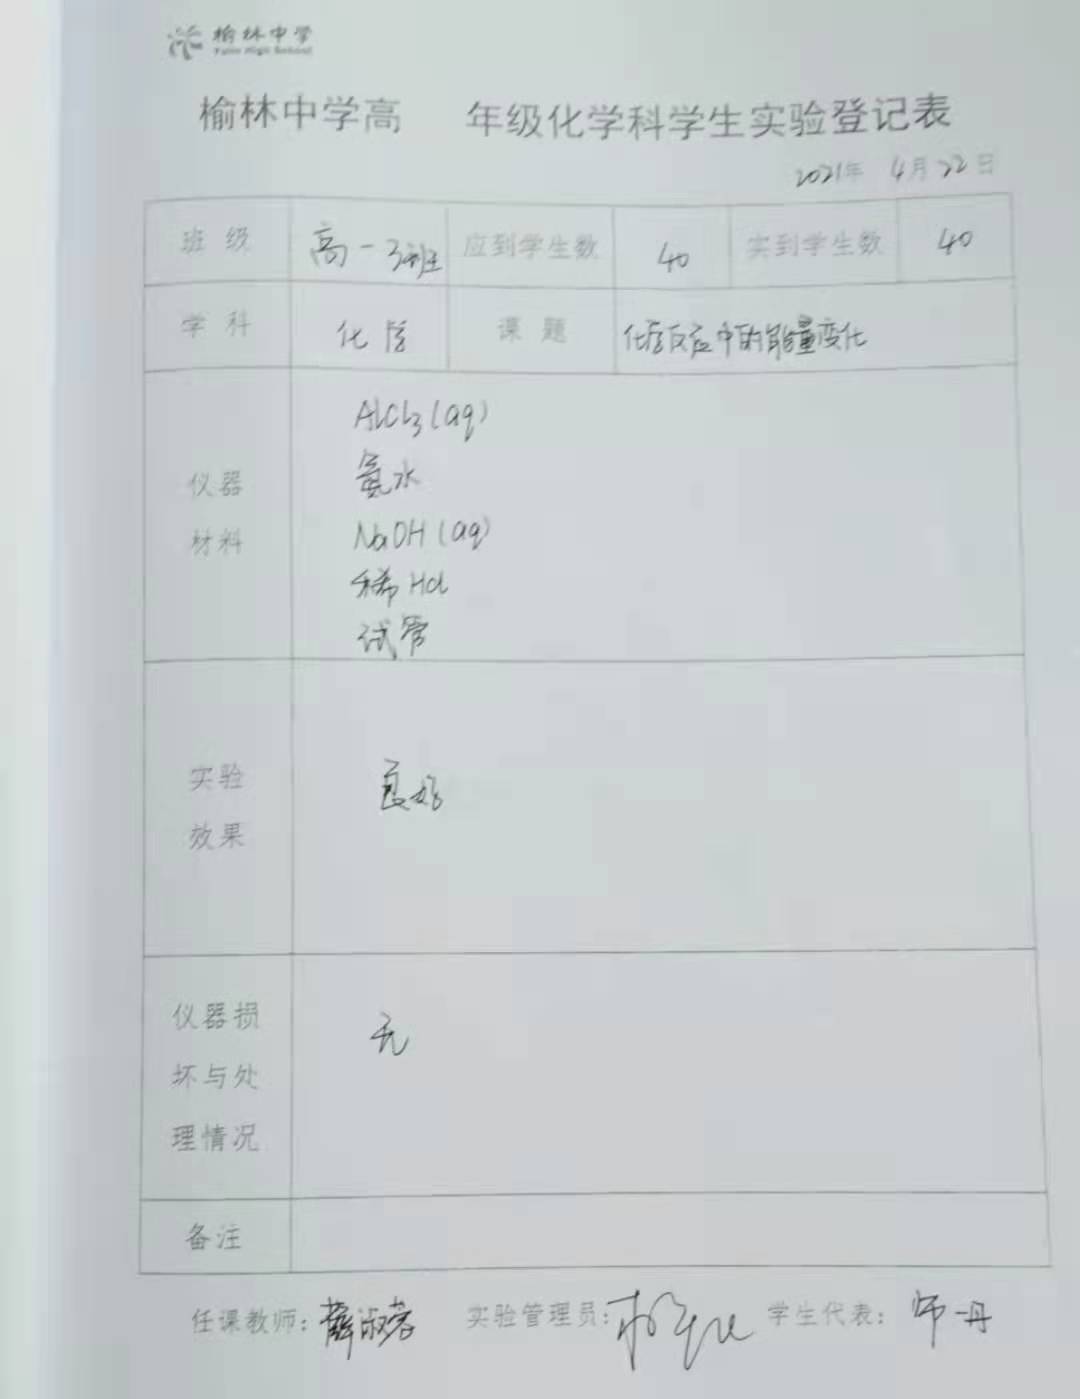 榆林中学
Yulin High School
榆林中学高 年级化学科学生实验登记表
2021年 4月22日
班 级 高一3班 应到学生数 40 实到学生数 40
学 科 化学 课 题 化学反应中的能量变化
AlCl3(aq)
氨水
仪器
材料
NaOH(aq)
稀HCl
试管
实验
效果
良好
仪器损
坏与处
理情况
无
备注
任课教师: 薛淑蓉 实验管理员: 学生代表: 师一丹